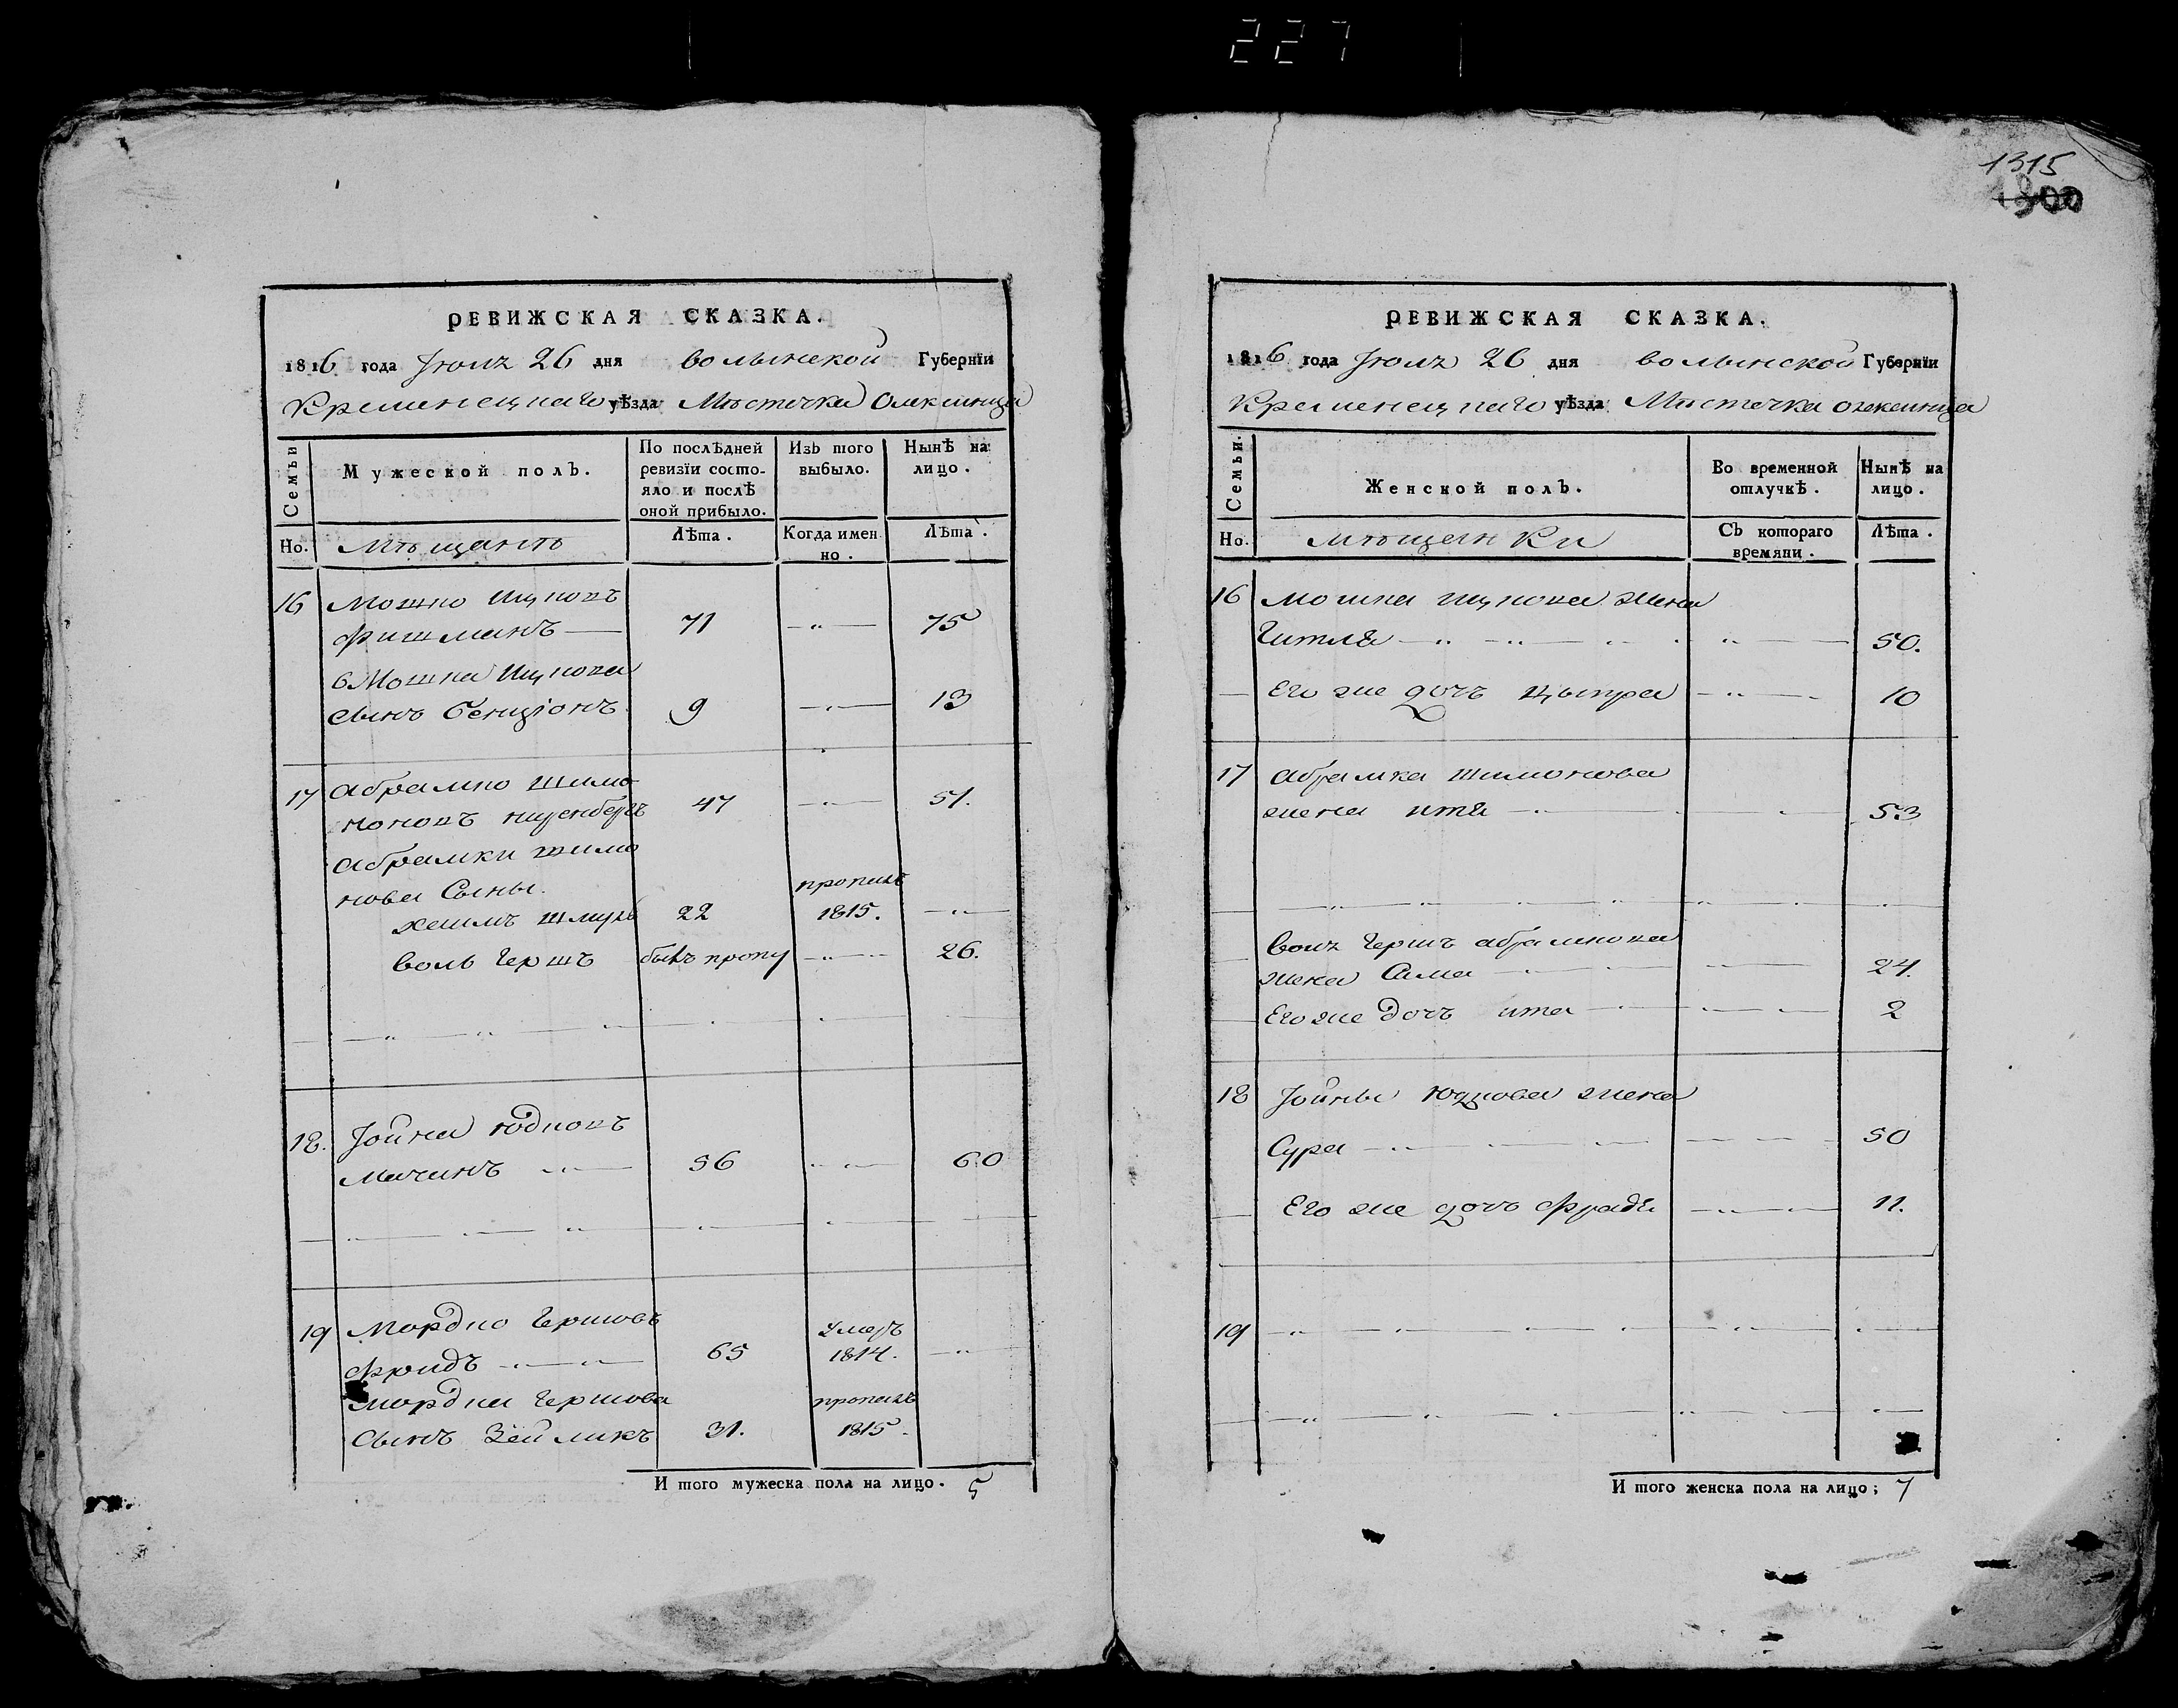 227
1315
1300
РЕВИЖСКАЯ СКАЗКА.
1816 года Іюля 26 дня волынской Губерніи
Кременецкаго уѣзда Мѣстечка Олексинца
Семьи
Мужеской полъ.
По послѣдней ревизіи состояло и послѣ оной прибыло.
Изъ того выбыло.
Нынѣ на лицо.
Но.
Мѣщанѣ
Лѣта.
Когда именно.
Лѣта.
16 Мошко Ицковъ
Фишманъ — 71 — „ — 75
Мошка Ицкова
сынъ бенціонъ 9 — „ — 13
17 Абрамко шимо
ноновъ 47 — „ — 51.
Абрамки шимо
нова Сыны.
хаимъ шмуль 22 пропалъ 1815. — „ —
воль Гершъ былъ пропу — „ — 26.
18. Іойна юдковъ
56 — „ — 60
19 Мордко Гершовъ
Фридъ — „ — „ — 65 Умеръ 1814. — „
мордка Гершова
Сынъ Зейликъ 31. пропалъ 1815.
И того мужеска пола на лицо. 5
РЕВИЖСКАЯ СКАЗКА.
1816 года Іюля 26 дня волынской Губерніи
Кременецкаго уѣзда Мѣстечка олексинца
Семьи.
Женской полъ.
Во временной отлучкѣ.
Нынѣ на лицо.
Но.
мѣщанки
Съ котораго времяни.
Лѣта.
16 Мошка ицкова жена
Гитля — „ — „ — 50.
— Его же дочь Цыпра — „ — 10
17 абрамка шимонова
жена итя — „ — 53
воля Гершъ абрамкова
жена Сима — 24.
Его же дочь ита — 2
18 Іойны Юдкова жена
Сура — „ — 50
Его же дочь Фрадя — „ — 11.
19 — „ — „ —
И того женска пола на лицо; 7